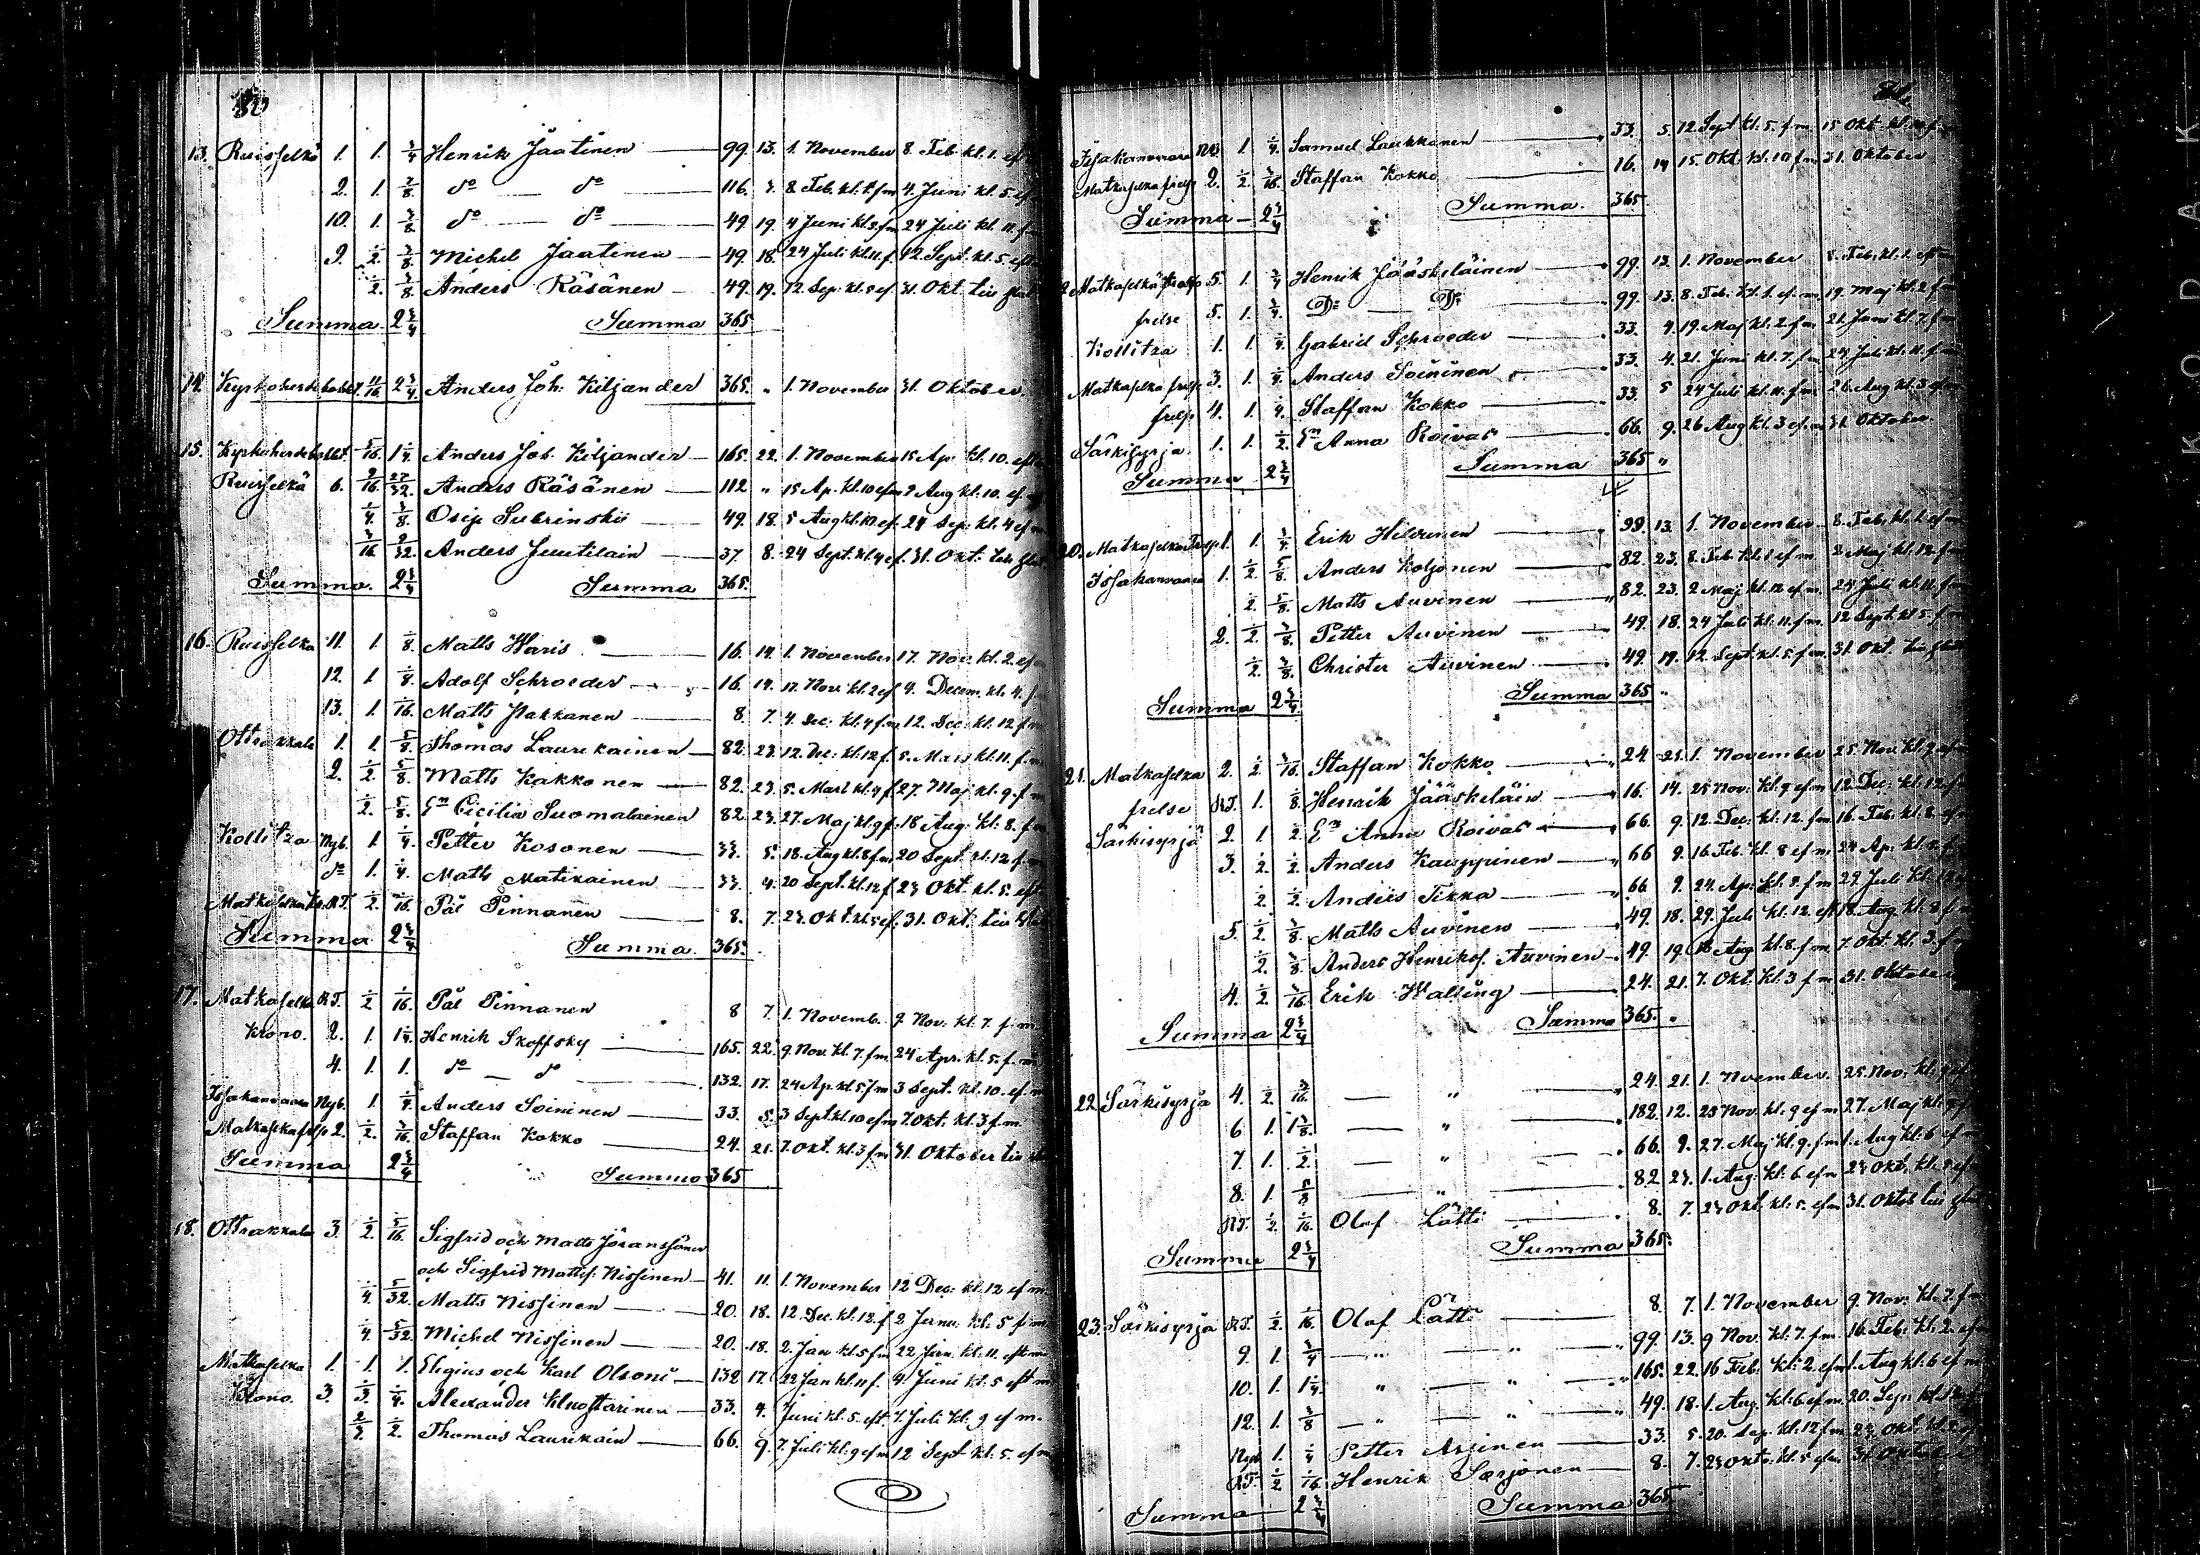 13. Ruisselkä 1. 1. 3/4 Henrik Jäätinen 99 13. 1. November 8. Feb. kl. 1. ef
2. 1. 7/8 do do 116. 3. 8 Feb. kl. 1. fm 4. Juni kl. 5. ef
10. 1. 3/8 do do 49 19. 4 Juni kl. 5. fm 24 Juli kl. 11. f
9. 1/2. 3/8 Michel Jaatinen 49 18. 24 Juli kl. 11. f. 12. Sept. kl. 5. eft
1/2. 3/8. Anders Räsänen 49. 19. 12. Sep. kl. 5 ef 31. Okt. till
Summa 2 3/4 Summa 365
14. Kyrkoherdebohlt. 11/16 2 3/4 Anders Joh: Kiljander 365. „ 1. November 31. Oktober.
15. Kyrkoherdebohlt. 5/16. 1 1/4 Anders Joh. Kiljander 165. 22. 1. November 15 Ap. kl. 10. eft
Ruisselkä 6. 9/16. 27/32. Anders Räsänen 112 „ 15 Ap. kl. 10 efm 5 Aug kl. 10. ef.
1/4. 3/8. Osip Subrinskii 49. 18. 5 Aug kl. 10 ef. 24 Sep. kl. 4 ef
3/16. 9/32. Anders Juutilain 37 8. 24 Sept. kl. 4 ef. 31. Okt:
Summa. 2 3/4 Summa 365.
16. Ruisselka 11. 1 1/8. Matts Haris 16. 14. 1. November 17. Nov. kl. 2. ef
12. 1 1/8. Adolf Schroeder 16. 14. 17. Nov. kl. 2 ef 4. Decem. kl. 4. f
13. 1. 1/16. Matts Pakkanen 8. 7. 4. Dec: kl. 4 f.m. 12. Dec. kl. 12 f
Ottrakkala 1. 1. 5/8. Thomas Laurikainen 82. 23. 12. Dec: kl. 12 f. 5. Mars kl. 11. f.
2. 1/2. 5/8. Matts Kakkonen 82. 23. 5. Mars kl. 11 f. 27. Maj kl. 9. f
1/2. 5/8. En Cicilia Suomalainen 82. 23. 27. Maj kl. 9 f. 18 Aug. kl: 8. f
Kollitza Nyb. 1. 1/4. Petter Kosonen 33. 5. 18. Aug kl. 8 fm 20 Sept. kl. 12 f.
do 1. 1/4. Matts Matikainen 33. 4. 20 Sept. kl. 12 f 23 Okt. kl. 5. eft
Matkaselka Kr. RT. 1/2. 1/16. Pål Pinnanen 8. 7 23. Okt. kl. 5 ef. 31. Okt:
Summa 2 3/4 Summa. 365.
17. Matkaselka RT. 1/2 1/16. Pål Pinnanen 8 7 1. Novemb. 9. Nov. kl. 7. f. m.
Krono. 2. 1. 1 1/4. Henrik Skoffsky 165. 22. 9. Nov. kl. 7. fm 24 Apr. kl. 5. f. m
4. 1. 1. do do 132. 17. 24 Ap. kl. 5 fm 3 Sept. kl. 10. ef. m
Issakanvaara Nyb. 1. 1/4. Anders Soininen 33. 5. 3 Sept. kl. 10 efm 7. Okt. kl. 3 f. m.
Matkaselka 2. 1/2. 3/16. Staffan Kokko 24. 21. 7. Okt. kl. 3 fm 31. Oktober
Summa 2 3/4 Summa 365
18. Ottrakkala 3. 1/2. 5/16. Sigfrid och Matts Jöranssöner
och Sigfrid Mattss: Nissinen 41. 11. 1. November 12 Dec: kl. 12 ef m.
1/4. 5/32. Matts Nissinen 20. 18. 12. Dec. kl. 12. f 2 Janu. kl. 5 f. m.
1/4. 5/32. Michel Nissinen 20. 18. 2. Jan kl. 5 fm 22 Jan. kl. 11. eft m
Matkaselka 1. 1. 1. Eligius och Karl Olsoni 132 17. 22 Jan kl. 11 f. 4. Juni kl. 5 eft m
Krono. 3. 1/3. 1/4. Alexander Kluostarinen 33. 4. Juni kl. 5. eft 7. Juli kl. 9 ef m.
2/3. 1/2. Thomas Laurikain 66. 9. 7. Juli kl. 9 ef m 12 Sept kl. 5. ef m
Issakanvaara Nyb. 1. 1/4. Samuel Laukkanen 33. 5. 12. Sept kl. 5. f m 15 Okt. kl. 10 f
Matkaselka frelse 2. 1/2. 3/16. Staffan Kokko 16. 14 15. Okt. kl. 10 f m 31. Oktober
Summa 2 3/4 Summa. 365.
Matkaselkä frelse 5. 1. 3/4 Henrik Jääskeläinen 99. 13. 1. November 8. Feb. kl. 1. eft
frelse 5. 1. 3/4. Do Do 99. 13. 8. Feb: kl. 1. ef. m 19. Maj kl. 2 f
Kollitza 1. 1. 1/4. Gabriel Schroeder 33. 4. 19. Maj kl. 2. f m 21. Juni kl. 7. f
Matkaselka frelse 3. 1. 1/4. Anders Soininen 33. 4. 21. Juni kl. 7. f m 24 Juli kl. 11. f
frelse 4. 1. 1/4. Staffan Kokko 33. 5 24 Juli kl. 11. f m 26 Aug kl. 3 ef
Särkisyrja 1. 1. 1/2. En Anna Roivas 66. 9. 26 Aug kl. 3 ef. m 31. Oktober
Summa 2 3/4 Summa 365 „
20. Matkaselka Frelse 1. 1 3/4. Erik Hilvunen 99 13. 1. November 8. Feb. kl. 1. ef
Issakanvaara 1. 1/2. 5/8. Anders Koljonen 82. 23. 8. Feb. kl. 1 ef m. 2 Maj kl. 12 f
1/2. 5/8. Matts Auvinen 82. 23. 2 Maj kl. 12 ef m. 24 Juli kl. 11. f
2. 1/2. 3/8. Petter Auvinen 49. 18. 24 Juli kl. 11. f m. 12 Sept. kl. 5. f
1/2. 3/8. Christer Auvinen 49. 19. 12. Sept. kl. 5. f m. 31. Okt.
Summa 2 3/4. Summa 365 „
21. Matkaselka 2. 1/2 3/16. Staffan Kokko 24 21. 1. November 25. Nov. kl. 9. ef
frelse RT. 1. 1/8. Henrik Jääskeläin 16. 14. 25 Nov. kl. 9 ef m 12. Dec. kl. 12 f
Särkisyrjä 2. 1. 1/2. En Anna Roivas 66. 9. 12. Dec. kl. 12. f m 16. Feb. kl. 8
3. 1/2. 1/2. Anders Kauppinen 66 9. 16. Feb. kl. 8 ef m 24 Ap. kl. 9. f
1/2. 1/2. Anders Tikka 66. 9. 24. Ap. kl. 9. f m 29. Juli kl. 12
5. 1/2. 3/8. Matts Auvinen 49. 18. 29. Juli kl. 12. eft 18. Aug. kl. 8 f
1/2. 3/8. Anders Henrikss. Auvinen 49. 19. 18. Aug kl. 8. f m. 7. Okt. kl. 3. f
4. 1/2. 3/16. Erik Walling 24. 21. 7. Okt. kl. 3 f m. 31. Oktober
Summa 2 3/4 Summa 365. „
22. Särkisyrjä 4. 1/2. 3/16. „ 24. 21. 1. November. 25. Nov. kl. 9
6. 1. 1 3/8. „ 182. 12. 25 Nov. kl. 9 ef m 27. Maj kl. 9
7. 1. 1/2. „ 66. 9. 27. Maj kl. 9. f m 1. Aug kl. 6 ef
8. 1. 5/8 „ 82. 23. 1. Aug. kl. 6. ef m 23 Okt. kl. 5
RT. 1/2. 1/16. Olof Lätti 8. 7. 23 Okt. kl. 5. ef m 31. Oktob
Summa 2 3/4 Summa 365.
23. Särkisyrjä RT. 1/2. 1/16. Olof Lätti 8. 7. 1. November 9. Nov. kl. 7. f
9. 1. 3/4 „ „ 99. 13. 9 Nov. kl. 7. f m. 16. Feb. kl. 2. ef
10. 1. 1 1/4. „ „ 165. 22. 16 Feb. kl. 2. ef m 1. Aug kl. 6 ef
12. 1. 3/8 „ „ 49. 18. 1. Aug. kl. 6 ef m. 20. Sep. kl. 12
Nyb 1. 1/4 Petter Asinen 33. 5. 20. Sep. kl. 12 f m 23. Okt. kl. 5
RT. 1/2 1/16. Henrik Sarjonen 8. 7. 23 Okto. kl. 5 ef m. 31 Oktober
Summa 2 3/4 Summa 365.
KODAK